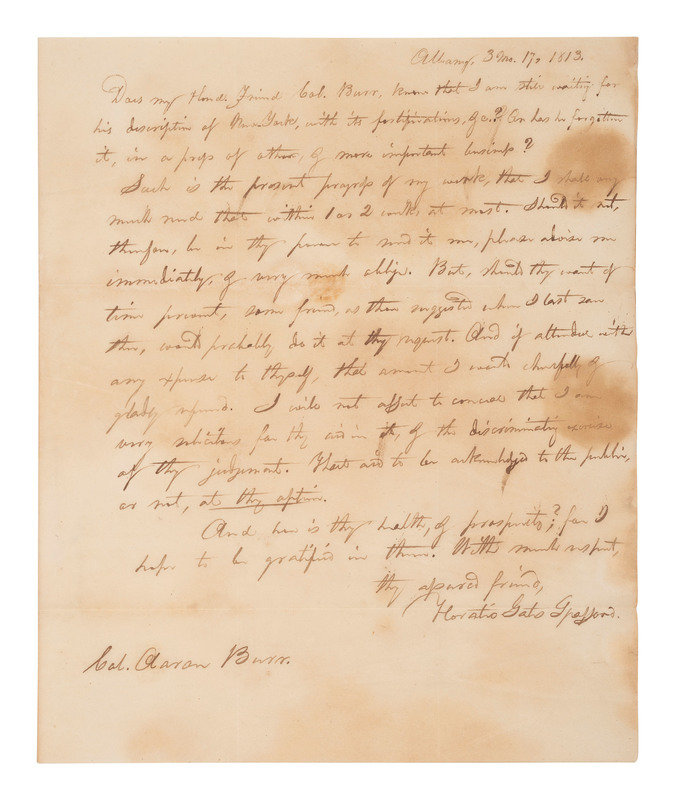 Albany, 3 Mo. 17, 1813.
Does my Hond. Friend Col. Burr, know that I am still waiting for
his discription of New-York, with its fortifications, &c.? Or has he forgotten
it, in a press of other, & more important business?
Such is the present progress of my work, that I shall very
much need that within 1 or 2 weeks at most. Should it not,
therefore, be in thy power to send it me, please advise me
immediately, & very much oblige. But, should thy want of
time prevent, some friend, as thou suggested when I last saw
thee, would probably do it at thy request. And if attended with
any expense to thyself, that amount I would cheerfully &
gladly refund. I will not affect to conceal that I am
very solicitous for thy aid in it, & the discriminating exercise
of thy judgement. That aid to be acknowledged to the public,
or not, at thy option.
And how is thy health, & prospects?; for I
hope to be gratified in them. With much respect,
thy assured friend,
Horatio Gates Spafford.
Col. Aaron Burr.